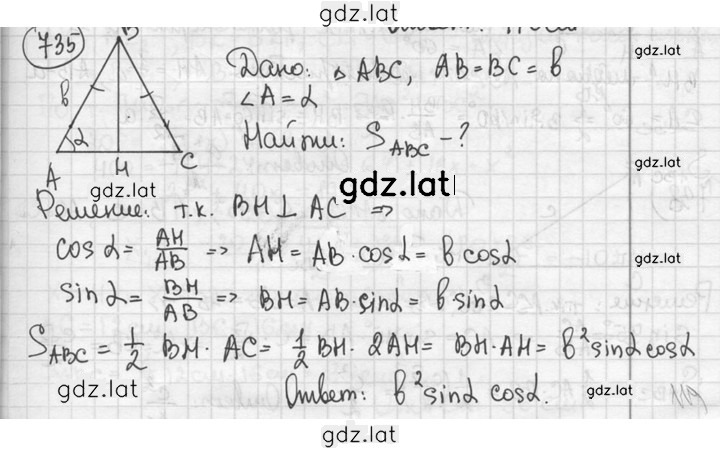 gdz.lat
735
gdz.lat
B
Дано: △ ABC, AB = BC = b
b
∠A = α
gdz.lat
α
Найти: S_ABC - ?
A H C
gdz.lat
gdz.lat
gdz.lat
Решение: т.к. BH ⊥ AC =>
cos α = AH/AB => AH = AB · cos α = b cos α
gdz.lat
sin α = BH/AB => BH = AB · sin α = b sin α
S_ABC = 1/2 BH · AC = 1/2 BH · 2AH = BH · AH = b² sin α cos α
gdz.lat
Ответ: b² sin α cos α.
gdz.lat
gdz.lat